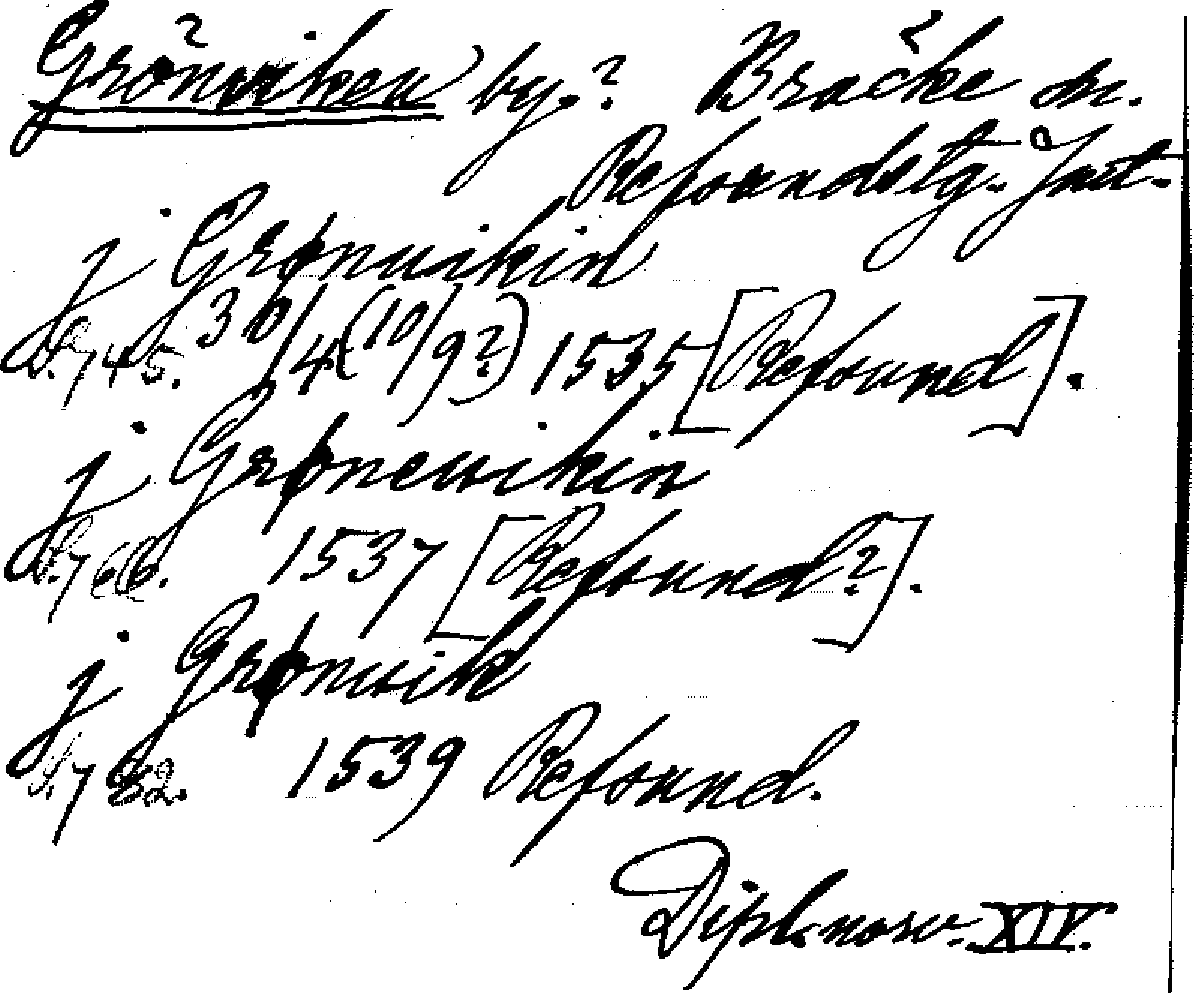 Grönviken by.? Bräcke sn.
Refsundstg. Jmt.
j Grønuikin
S. 745. 30/4 (10/9?) 1535 [Refsund].
j Grøneuikin
S. 766. 1537 [Refsund?].
j Grønuik
S. 782. 1539 Refsund.
Dipl. norv. XIV.